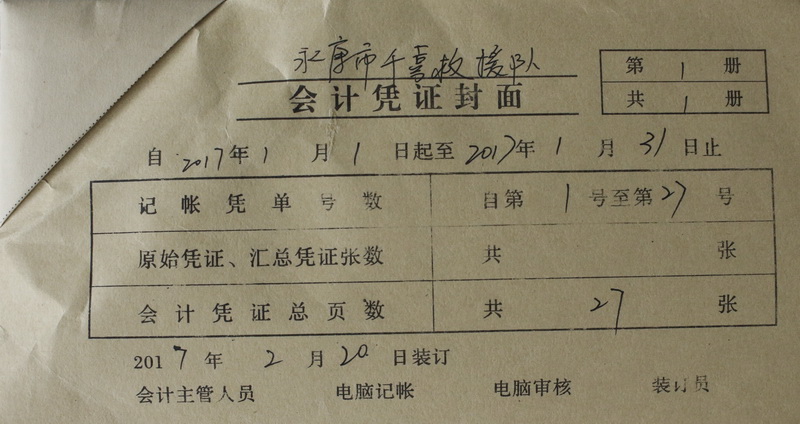 永康市千喜救援队
会计凭证封面
第 1 册
共 1 册
自 2017年 1 月 1 日起至 2017年 1 月 31 日止
记帐凭单号数 自第 1 号至第 27 号
原始凭证、汇总凭证张数 共 张
会计凭证总页数 共 27 张
2017 年 2 月 20 日装订
会计主管人员 电脑记帐 电脑审核 装订员